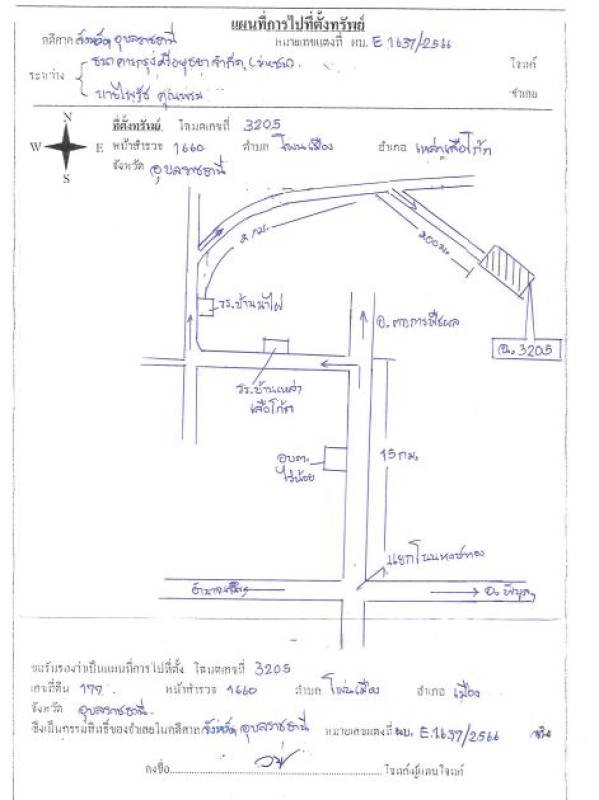 แผนที่การไปที่ตั้งทรัพย์
คดีศาล จังหวัด อุบลราชธานี หมายเลขแดงที่ ผบ. E 1637/2566
ระหว่าง ธนาคารกรุงศรีอยุธยา จำกัด (มหาชน) โจทก์
นายไพรัช คุณพรม จำเลย
ที่ตั้งทรัพย์ โฉนดเลขที่ 3205
หน้าสำรวจ 1660 ตำบล โพนเมือง อำเภอ เหล่าเสือโก้ก
จังหวัด อุบลราชธานี
N
W E
S
2 กม.
200 ม.
รร.บ้านนาไผ่
อ.ตาการพืชผล
ฉ. 3205
รร.บ้านเหล่า
เสือโก้ก
อบต.
ไร่น้อย
15 กม.
แยกโนนหงษ์ทอง
อำนาจเจริญ
อ. พิบูลฯ
ขอรับรองว่าเป็นแผนที่การไปที่ตั้ง โฉนดเลขที่ 3205
เลขที่ดิน 177 หน้าสำรวจ 1660 ตำบล โพนเมือง อำเภอ เมือง
จังหวัด อุบลราชธานี
ซึ่งเป็นกรรมสิทธิ์ของจำเลยในคดีศาล จังหวัด อุบลราชธานี หมายเลขแดงที่ ผบ. E.1637/2566 จริง
ลงชื่อ โจทก์ผู้แทนโจทก์